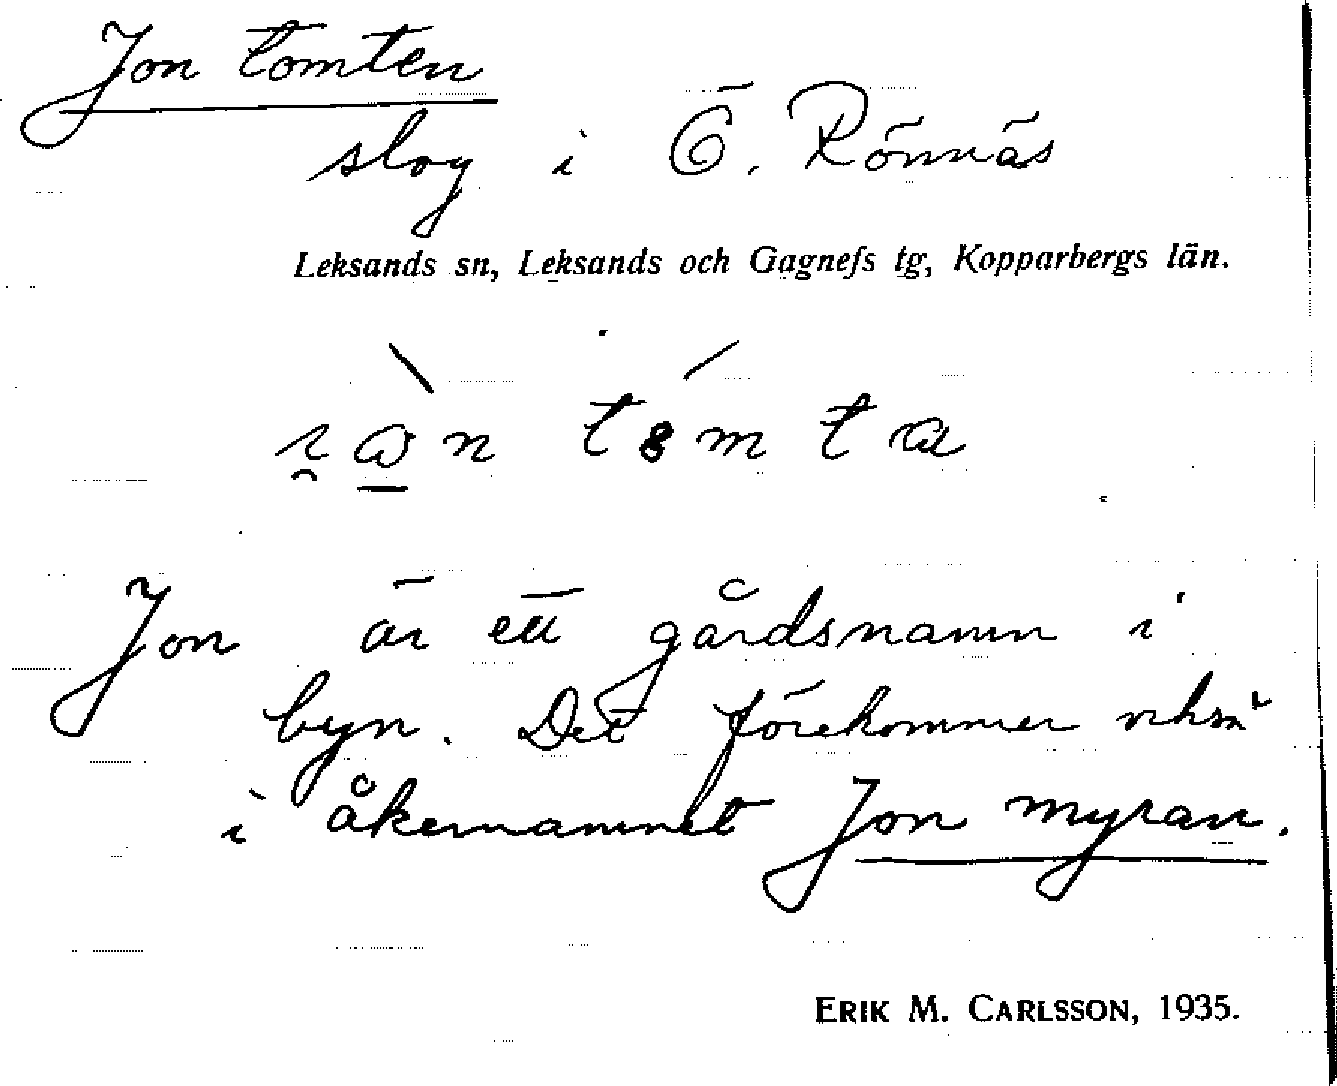 Jon tomten
slog i Ö. Rönnäs
Leksands sn, Leksands och Gagnefs tg, Kopparbergs län.
Jon är ett gårdsnamn i
byn. Det förekommer också
i åkernamnet Jon myran.
ERIK M. CARLSSON, 1935.